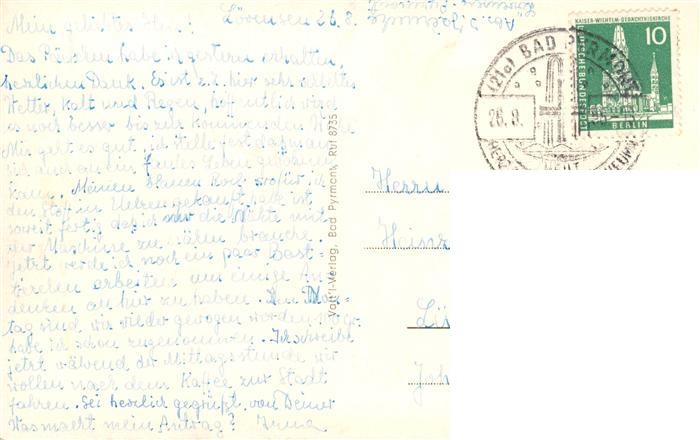 Mein geliebtes Löwensen 26.8.
Das Päckchen habe ich gestern erhalten,
herzlichen Dank. Es ist z.Z. hier sehr schlechtes
Wetter, kalt und Regen, hoffentlich wird
es noch besser bis zur kommenden Woche
Mir geht es gut, ich stelle fest daß man
sich auch an ein Leben gewöhnen
kann. Meinen blauen Rock wofür ich
den Stoff in Uelzen gekauft habe ist
soweit fertig daß ich nur die Nähte mit
der Maschine zu nähen brauche.
Jetzt werde ich noch ein paar Bast-
arbeiten um einige An-
denken an hier zu haben. Am Mon-
tag sind wir wieder gewogen worden
habe ich schon zugenommen. Ich schreibe
jetzt während der Mittagsstunde wir
wollen nach dem Kaffee zur Stadt
fahren. Sei herzlich gegrüßt von Deiner
Was macht mein Antrag? Irma
Volk'l-Verlag, Bad Pyrmont, Ruf 8735
Abs.
(21a) BAD PYRMONT
26.8.
KAISER-WILHELM-GEDÄCHTNISKIRCHE
10
DEUTSCHE BUNDESPOST
BERLIN
Herrn
Heinz